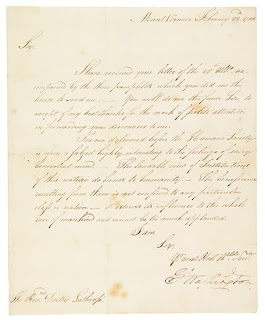 Mount Vernon February 22d 17
Sir,
I have received your letter of the 15th Ulto. ac-
companied by the three pamphlets which you did me the
honor to send me. — You will do me the favor Sir, to
accept of my best thanks for the mark of polite attention
in forwarding your discourse to me.
Your discourse delivered before the Humane Society
is upon a subject highly interesting to the feelings of every
benevolent mind. The laudable view of institutions
of this nature do honor to humanity. — The beneficence
resulting from them is not confined to any particular
class or nation — It extends its influence to the whole
race of mankind and cannot be too much applauded.
I am
Sir,
Yr most Obed. Hble Ser.
Go Washington
The Revd. Doctr Lathrop